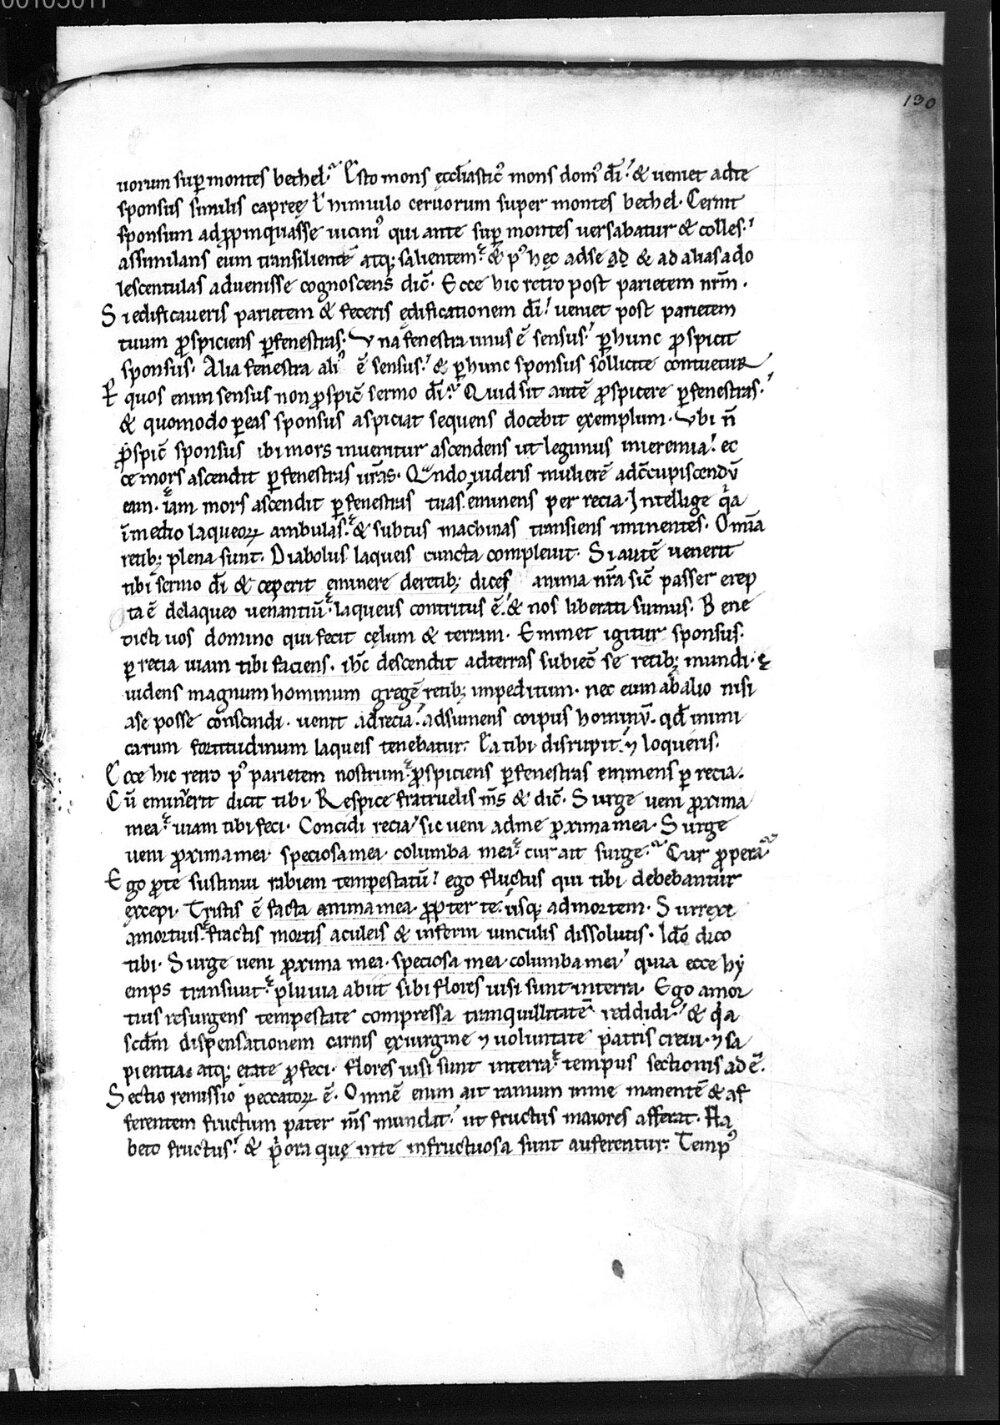 00105011
130
uorum sup̄ montes bethel. Esto mons ęcclīasticꝰ mons domꝰ dī. & ueniet adte
sponsus similis capreę ł hinnulo ceruorum super montes bethel. Cernit
sponsum adpp̱inquasse uicinꝰ qui ante sup̄ montes uersabatur & colles.
assimilans eum transiliente atq; salientem. & pꝰ hęc adse ad & ad alias ado
lescentulas aduenisse cognoscens dic̄. Ecce hic retro post parietem nrm̄.
Si edificaueris parietem & feceris ędificationem dī. ueniet post parietem
tuum ꝓspiciens ꝑ fenestras. Vna fenestra unus ē sensus. ꝑ hunc ꝓspicit
sponsus. Alia fenestra aliꝰ ē sensus. & ꝑ hunc sponsus sollicite contuetur
Ꝑ quos enim sensus non ꝓspic̄ sermo dī. Quid sit autē ꝓspicere ꝑ fenestras.
& quomodo ꝑ eas sponsus aspiciat sequens docebit exemplum. Vbi n̄
ꝓspic̄ sponsus ibi mors inuenitur ascendens ut legimus inieremia. ec
ce mors ascendit ꝑ fenestras uras. Qndo uideris mulierē adc̄cupiscendū
eam. iam mors ascendit ꝑ fenestras tuas. eminens per recia. Intellige qa
ī medio laqueoꝝ ambulas. & subtus machinas transiens iminentes. Omīa
retib; plena sunt. Diabolus laqueis cuncta compleuit. Si autē uenerit
tibi sermo dī & ceperit eminere deretib; dices anima nrā sic̄ passer erep
ta ē delaqueo uenantiū. laqueus contritus ē. & nos liberati sumus. Bene
dicti uos domino qui fecit cęlum & terram. Eminet igitur sponsus.
ꝑ recia uiam tibi faciens. ihc̄ descendit adterras subiec̄ se retib; mundi. &
uidens magnum hominum gregē retib; impeditum. nec eum abalio nisi
ase posse conscindi. uenit adrecia. adsumens corpus hominū. qd̄ inimi
carum fortitudinum laqueis tenebatur. Ea tibi disrupit. ⁊ loqueris.
Ecce hic retro pꝰ parietem nostrum. ꝓspiciens ꝑ fenestras eminens ꝑ recia.
Cū eminerit dicit tibi Respice fratruelis ms̄ & dic̄. Surge ueni ꝓxima
mea. uiam tibi feci. Concidi recia. sic ueni adme ꝓxima mea. Surge
ueni ꝓxima mea speciosa mea columba mea. cur ait surge. Cur ꝓpera.
Ego ꝓte sustinui rabiem tempestatū. ego fluctus qui tibi debebantur
excepi. Tristis ē facta anima mea. ꝓpter te. usq; admortem. Surrexi
amortuis. fractis mortis aculeis & inferni uinculis dissolutis. Idō dico
tibi. Surge ueni ꝓxima mea. speciosa mea columba mea quia ecce hy
emps transiuit. pluuia abiit sibi flores uisi sunt interra. Ego amor
tuis resurgens tempestate compressa tranquillitatē reddidi. & qa
scdm̄ dispensationem carnis exuirgine ⁊ uoluntate patris creui. ⁊ sa
pientia. atq; etate ꝓfeci. flores uisi sunt interra. tempus sectionis ad ē.
Sectio remissio peccatoꝝ ē. Omnē enim ait ramum inme manentē & af
ferentem fructum pater ms̄ mundat. ut fructus maiores afferat. Ha
beto fructus. & pora quę inte infructuosa sunt auferentur. Tempꝰ